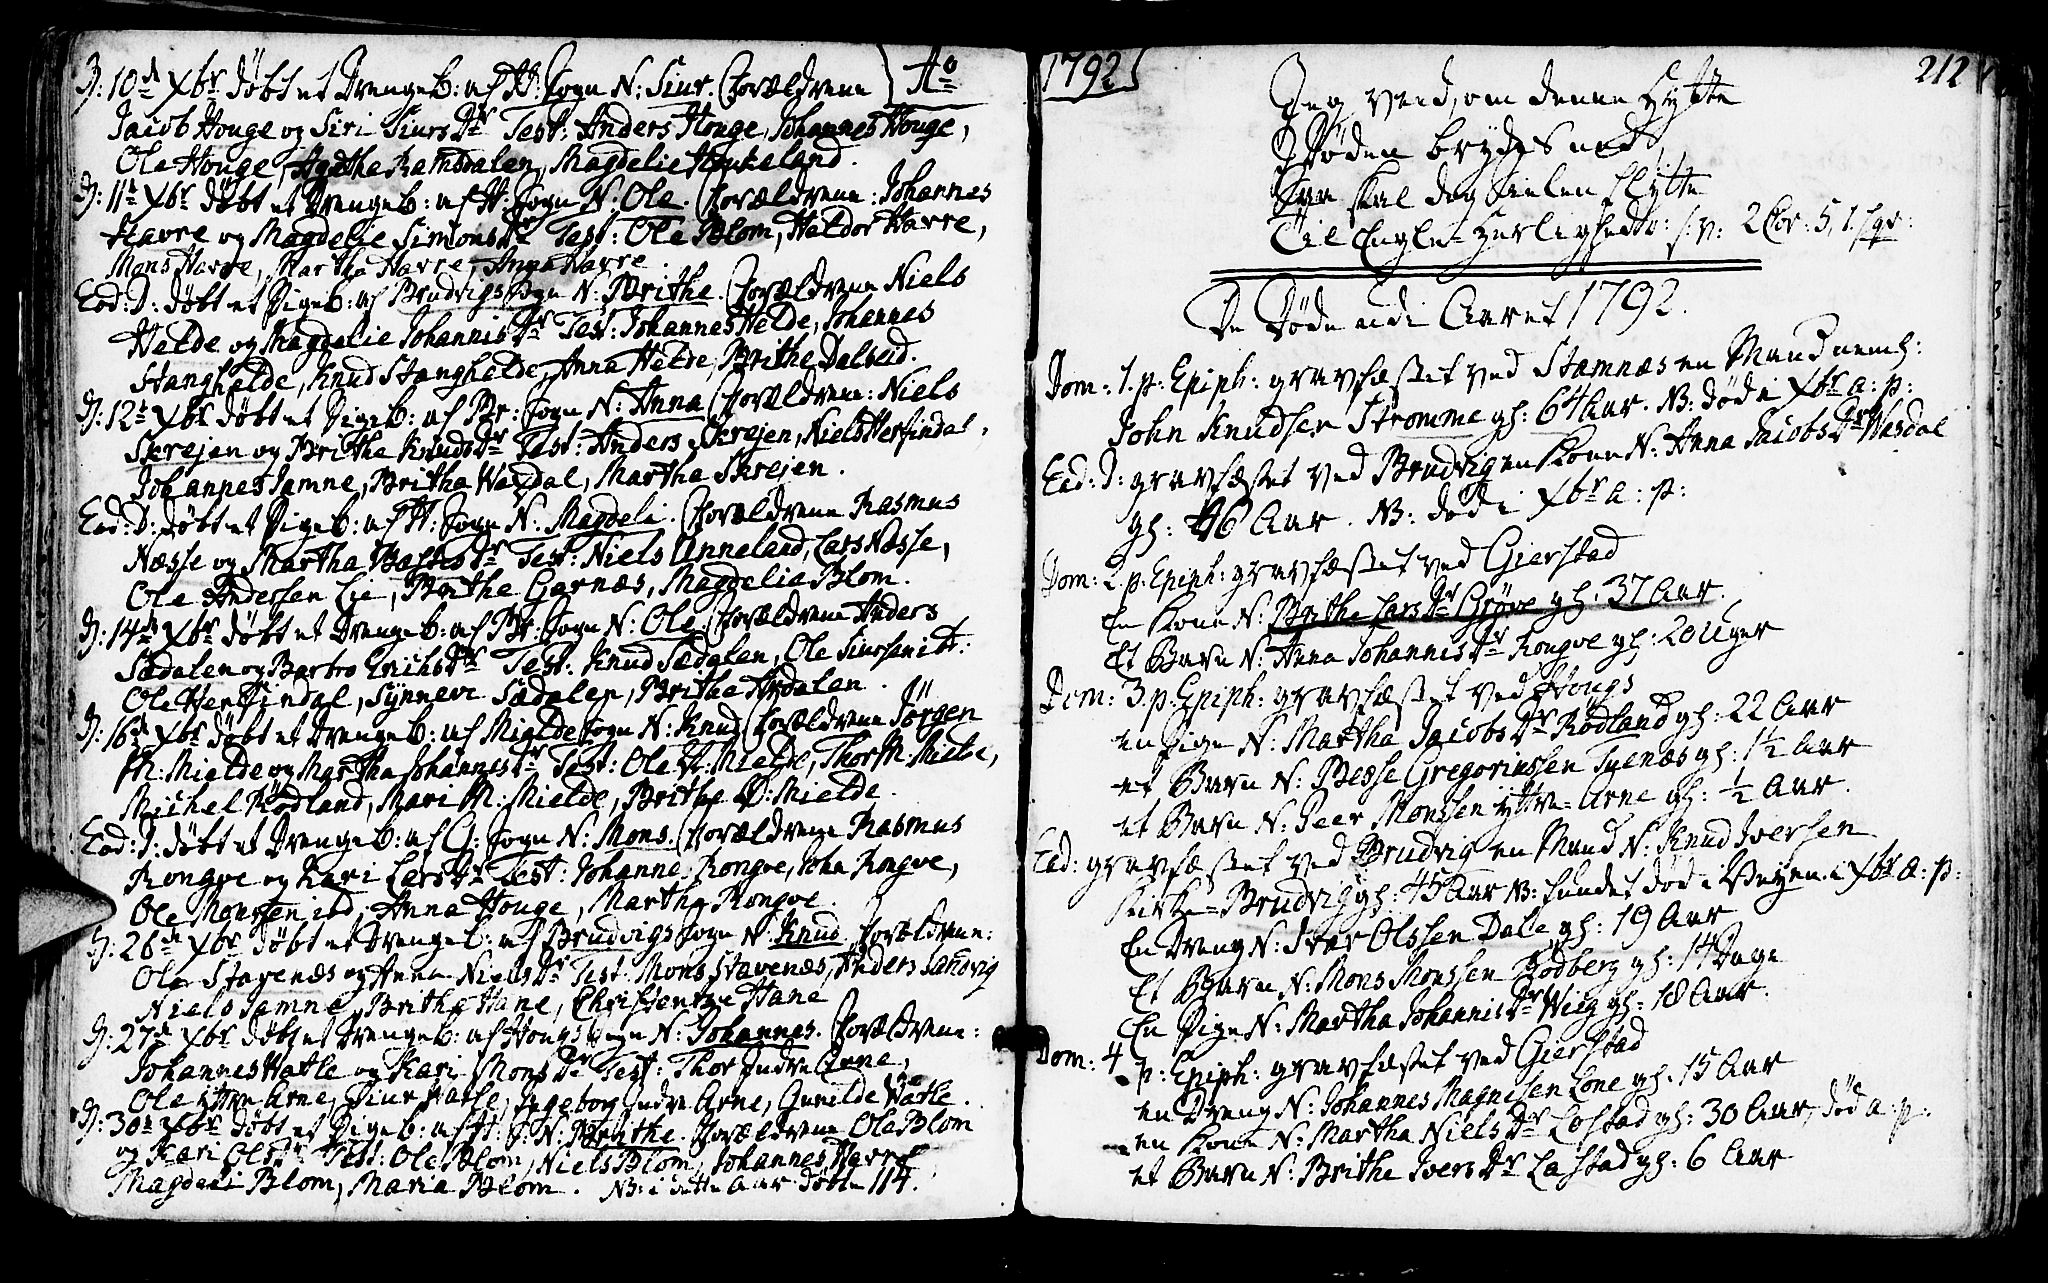 D: 10de Xbr døbt et Drengeb: af H: Sogn N: Siur. Forældrene
Jacob Houge og Siri Siurs Dr Test: Anders Houge, Johannes Houge,
Ole Houge, Agetha Ramsdalen, Magdelie Haukeland.
D: 11te Xbr døbt et Drengeb: af H: Sogn N: Ole Forældrene: Johannes
Havre og Magdelie Simons Dr Test: Ole Blom, Haldor Havre,
Mons Havre, Martha Havre, Anna Havre.
Eod: D: døbt et Pigeb: af Brudvigs Sogn N: Brithe. Forældrene Niels
Helde og Magdelie Johannis Dr Test: Johannes Helde, Johannes
Stanghelde, Knud Stanghelde, Anna Helde, Brithe Dalseid.
D: 12te Xbr døbt et Pigeb: af Br: Sogn N: Anna Forældrene: Niels
Skrejen og Brithe Knuds Dr Test: Anders Skrejen, Niels Herfindal,
Johannes Samne, Britha Wasdal, Martha Skrejen.
Eod: D: døbt et Pigeb: af H: Sogn N: Magdeli. Forældrene Rasmus
Næsse og Martha Dr Test: Niels Anneland, Lars Næsse,
Ole Andersen Lie, Brithe Garnæs, Magdelia Blom.
D: 14de Xbr døbt et Drengeb: af Br: Sogn N: Ole. Forældrene Anders
Sædalen og Barbro Erichs Dr Test: Knud Sædalen, Ole Siursen
Ole Herfindal, Synneve Sædalen, Brithe Ardalen.
D: 16de Xbr døbt et Drengeb: af Mielde Sogn N: Knud Forældrene Jörgen
M: Mielde og Martha Johannes Dr Test: Ole K: Mielde, Thor M: Mielde,
Michel Rödland, Mari M: Mielde, Brithe D: Mielde.
Eod: D: døbt et Drengeb: af G: Sogn N: Mons. Forældrene Rasmus
Rongve og Kari Lars Dr Test: Johanne Rongve, John Rongve,
Ole Monssen ibd, Anna Houge, Martha Rongve.
D: 26de Xbr døbt et Drengeb: af Brudvigs Sogn N: Knud Forældrene:
Ole Stavenæs og Anna Niels Dr Test: Mons Stavenæs, Anders Sandvig
Niels Samne, Brithe Hane, Christentze Hane
D: 27de Xbr døbt et Drengeb: af Hougs Sogn N: Johannes. Forældrene:
Johannes Watle og Kari Mons Dr Test: Thor Indre Arne,
Ole ÿttre Arne, Siur Watle, Ingeborg Indre Arne, Gurilde Watle.
D: 30te Xbr døbt et Pigeb: af H: S: N: Brithe. Forældrene Ole Blom
og Kari Ols Dr Test: Ole Blom, Niels Blom, Johannes Havre
Magdeli Blom, Maria Blom. NB: i dette Aar døbte 114.
Ao
1792
212
Jeg veed, om denne Hytte
I Døden brydes ned,
Saa skal dog Sielen flytte
Til Engle-Herlighed v: s: v: 2 Cor: 5, 1. sqv:
De Døde udi Aaret 1792.
Dom: 1. p: Epiph: gravfæstet ved Stamnæs en Mand nemh:
John Knudsen Stromme gl: 64 Aar. NB: død i Xbr a: p:
Eod: D: gravfæstet ved Brudvig en Kone N: Anna Jacobs Dr Wasdal
gl: 46 Aar. NB: død i Xbr a: p:
Dom: 2. p: Epiph: gravfæstet ved Gierstad
En Kone N: Brithe Lars Dr Grøve gl: 37 Aar.
Et Barn N: Anna Johannis Dr Rongve gl: 20 Uger
Dom: 3. p: Epiph: gravfæstet ved Hougs
en Pige N: Martha Jacobs Dr Rödland gl: 22 Aar
et Barn N: Besse Gregoriussen Tuenæs gl: 1½ Aar
et Barn N: Peer Monssen ÿttre-Arne gl: ½ Aar.
Eod: gravfæstet ved Brudvig en Mand N: Knud Iversen
Kirke-Brudvig gl: 45 Aar NB: fundet død i Veyen i Xbr a: p:
En Dreng N: Iver Olssen Dale gl: 19 Aar
Et Barn N: Mons Monssen Rödberg gl: 14 Dage
En Pige N: Martha Johannis Dr Wiig gl: 18 Aar.
Dom: 4 p: Epiph: gravfæstet ved Gierstad
en Dreng N: Johannes Magnesen Lone gl: 15 Aar
en Kone N: Martha Niels Dr Lostad gl: 30 Aar, død a: p:
et Barn N: Brithe Ivers Dr Lastad gl: 6 Aar